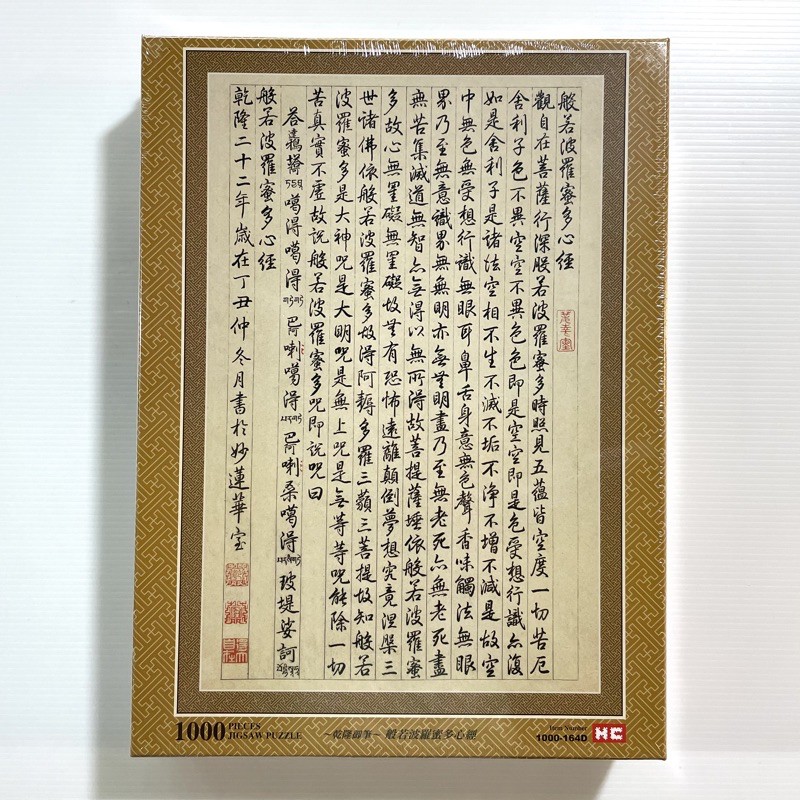 般若波羅蜜多心經
觀自在菩薩行深般若波羅蜜多時照見五蘊皆空度一切苦厄
舍利子色不異空空不異色色即是空空即是色受想行識亦復
如是舍利子是諸法空相不生不滅不垢不净不增不減是故空
中無色無受想行識無眼耳鼻舌身意無色聲香味觸法無眼
界乃至無意識界無無明亦無無明盡乃至無老死亦無老死盡
無苦集滅道無智亦無得以無所得故菩提薩埵依般若波羅蜜
多故心無罣礙無罣礙故無有恐怖遠離顛倒夢想究竟涅槃三
世諸佛依般若波羅蜜多故得阿耨多羅三藐三菩提故知般若
波羅蜜多是大神咒是大明咒是無上咒是無等等咒能除一切
苦真實不虛故說般若波羅蜜多咒即說咒曰
噶得噶得 巴阿喇噶得 巴阿喇桑噶得 玻堤娑訶
般若波羅蜜多心經
乾隆二十二年歲在丁丑仲冬月書於妙蓮華室
1000 PIECES JIGSAW PUZZLE
～乾隆御筆～ 般若波羅蜜多心經
Item Number
1000-164D HC